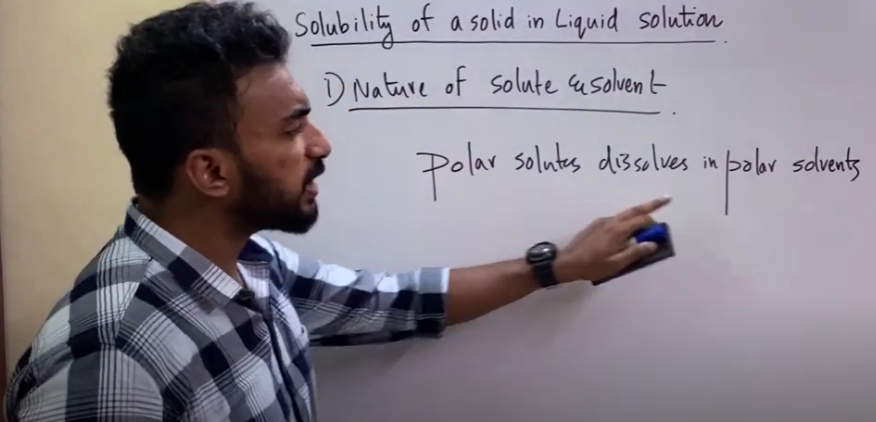 Solubility of a solid in Liquid solution
1) Nature of solute & solvent
Polar solutes dissolves in polar solvents